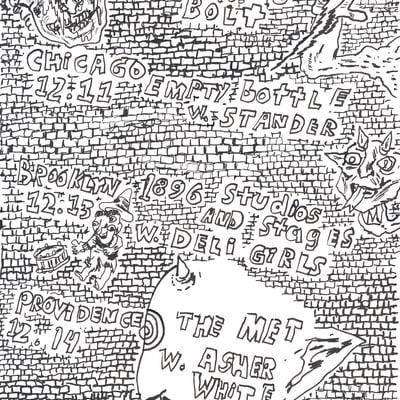 BOLT
CHICAGO
12.11 EMPTY BOTTLE
W. STANDER
BROOKLYN 1896 STUDIOS
12.13 AND STAGES
W. DELI GIRLS
PROVIDENCE
12.14
THE MET
W. ASHER
WHITE